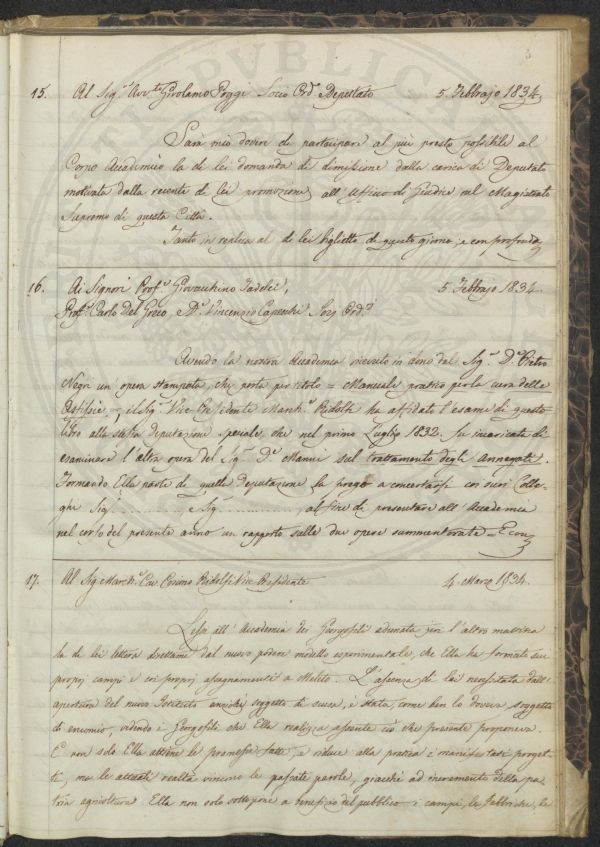 3
15. Al Sig.r Avv.to Girolamo Poggi Socio Ord.o Deputato 5 Febbrajo 1834
Sarà mio dovere di partecipare al più presto possibile al
Corpo Accademico la di lei domanda di dimissione dalla carica di Deputato
motivata dalla recente di lei promozione all' Uffizio di Giudice nel Magistrato
Supremo di questa Città.
Tanto in replica al di lei biglietto di questo giorno, e con profonda
16. Ai Signori Prof.r Giovacchino Taddei, 5 Febbrajo 1834.
Prof.r Carlo Del Greco, D.r Vincenzio Capecchi Socj Ord.j
Avendo la nostra Accademia ricevuto in dono dal Sig.r D.r Pietro
Negri un opera stampata che porta per titolo = Manuale pratico per la cura delle
Asfissie, = il Sig.r Vice Presidente March.e Ridolfi ha affidato l'esame di questo
libro alla stessa deputazione speciale, che nel primo Luglio 1832. fu incaricata di
esaminare l'altra opera del Sig.r D.r Manni sul trattamento degli Annegati.
Formando Ella parte di quella deputazione la prego a concertarsi con suoi Colle-
ghi Sig.i ........... e Sig.r ........... al fine di presentare all' Accademia
nel corso del presente anno un rapporto sulle due opere summentovate = E con
17. Al Sig. March.e Cav. Cosimo Ridolfi Vice Presidente 4. Marzo 1834.
Lessi all' Accademia dei Georgofili adunata jeri l'altro mattina
la di lei lettera direttami dal nuovo podere modello esperimentale, che Ella ha formato sui
proprj campi e coi proprj assegnamenti a Meleto. L'assenza di lei necessitata dall'
apertura del nuovo Istituto anzichè soggetto di scusa, è stata, come ben lo doveva soggetto
di encomio, vedendo i Georgofili che Ella realizza assente ciò che presente prometteva.
E non solo Ella attiene le promesse fatte, e riduce alla pratica i manifestati proget-
ti, ma le attuali realtà vincono le passate parole, giacchè ad incremento della pa-
tria agricoltura Ella non solo sottopone a benefizio del pubblico i campi, le fabbriche, le